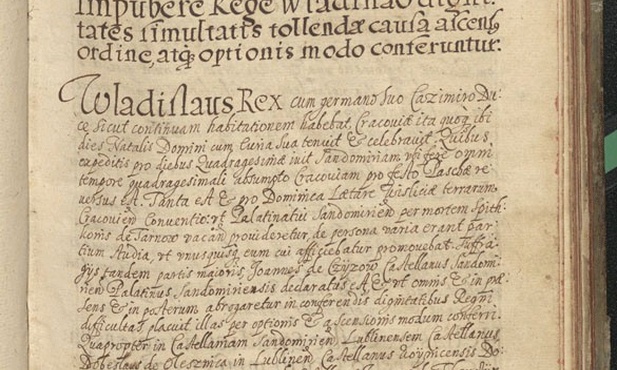 Impubere Rege Wladislao dignitates simultatis tollendæ causa ascens
ordine, atq; optionis modo conferuntur.
Wladislaus Rex cum germano suo Cazimiro Du-
ce sicut continuam habitationem habebat Cracoviæ ita quoq; ibi
dies Natalis Domini cum Curia sua tenuit & celebravit. Quibus
expeditis pro diebus Quadragesimæ ivit Sandomiriam, ubi fere omni
tempore quadragesimali absumpto Cracoviam pro festo Paschæ re-
versus est. Tanta est & pro Dominica Lætare terrarum
Cracovien Conventio: ut Palatinatui Sandomirien per mortem Spith-
konis de Tarnow vacan provideretur, de persona varia erant par-
tium studia, ut unusquisq; eum cui afficiebatur promovebat. Suffra-
gijs tandem partis maioris Joannes de Czyzow Castellanus Sandomi-
rien Palatinus Sandomiriensis declaratus est. Et ut omnis & in præ-
sens & in posterum abrogaretur in conferendis dignitatibus Regni
difficultas, placuit illas per optionis & ascensionis modum conferri.
Quapropter in Castellaniam Sandomirien Lublinensem Castellanus
Dobeslaus de Olesznica in Lublinen Castellanus Do-